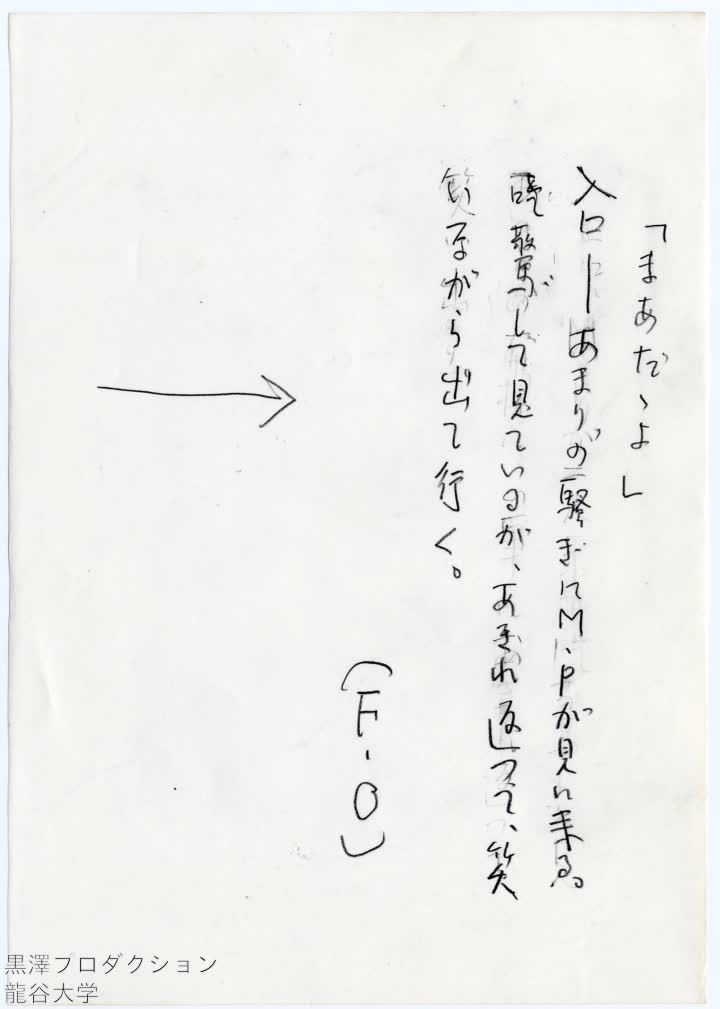 「まあだゝよ」
入口ーあまりの騒ぎにM.Pが見に来る。
驚ろして見ているが、あきれ返つて、笑
ながら出て行く。
(F・O)
黒澤プロダクション
龍谷大学